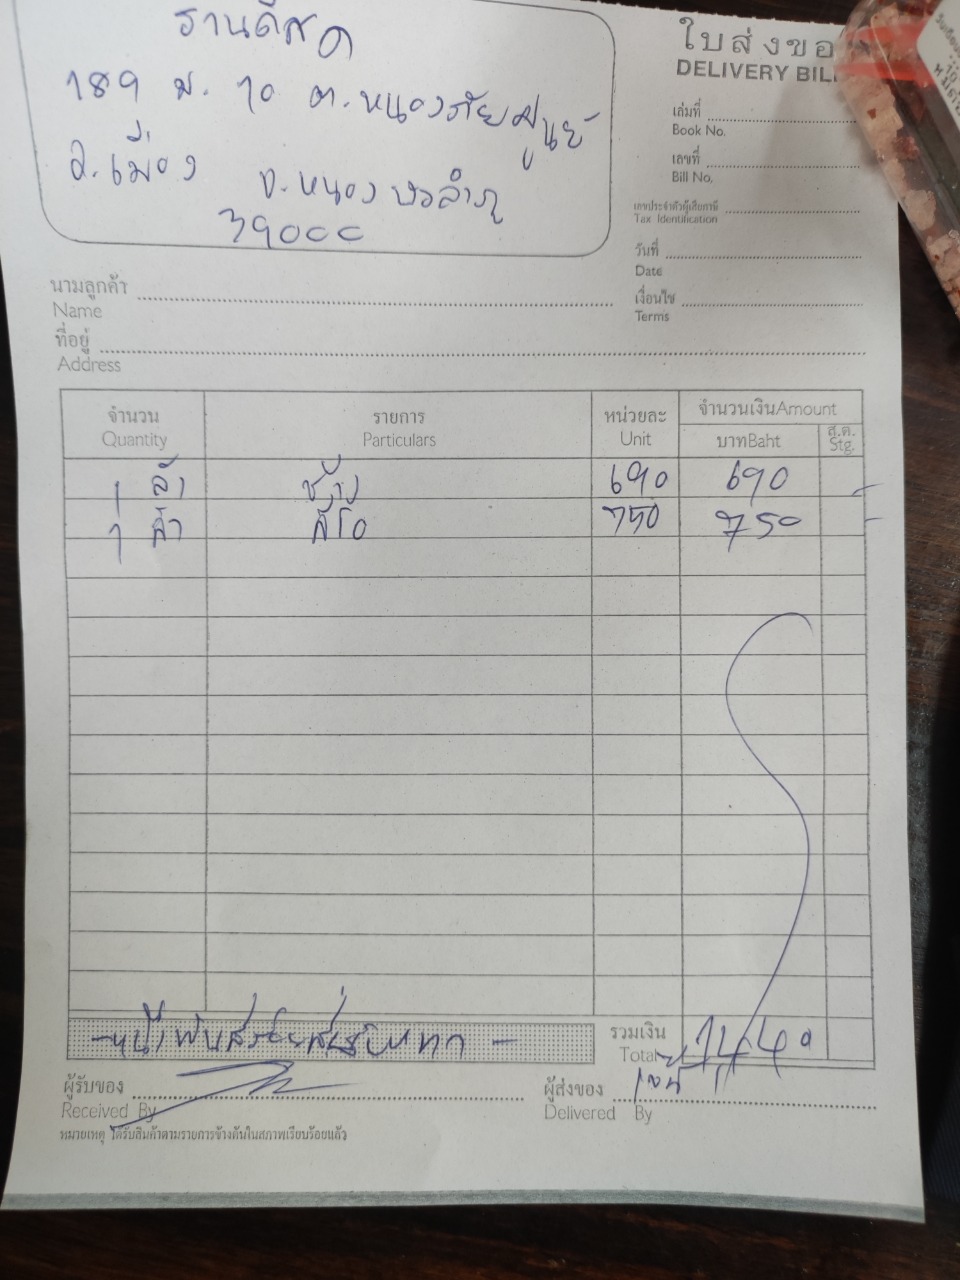 ร้านดีสด
189 ม. 10 ต.หนองภัยศูนย์
อ.เมือง จ.หนองบัวลำภู
39000
ใบส่งขอ
DELIVERY BIL
เล่มที่
Book No.
เลขที่
Bill No.
เลขประจำตัวผู้เสียภาษี
Tax Identification
วันที่
Date
เงื่อนไข
Terms
นามลูกค้า
Name
ที่อยู่
Address
จำนวน รายการ หน่วยละ จำนวนเงินAmount
Quantity Particulars Unit บาทBaht ส.ต. Stg.
1 ลัง ช้าง 690 690
1 ลัง ลีโอ 750 750
-หนึ่งพันสี่ร้อยสี่สิบบาท-
รวมเงิน
Total 1440
ผู้รับของ
Received By
ผู้ส่งของ
Delivered By
หมายเหตุ ได้รับสินค้าตามรายการข้างต้นในสภาพเรียบร้อยแล้ว